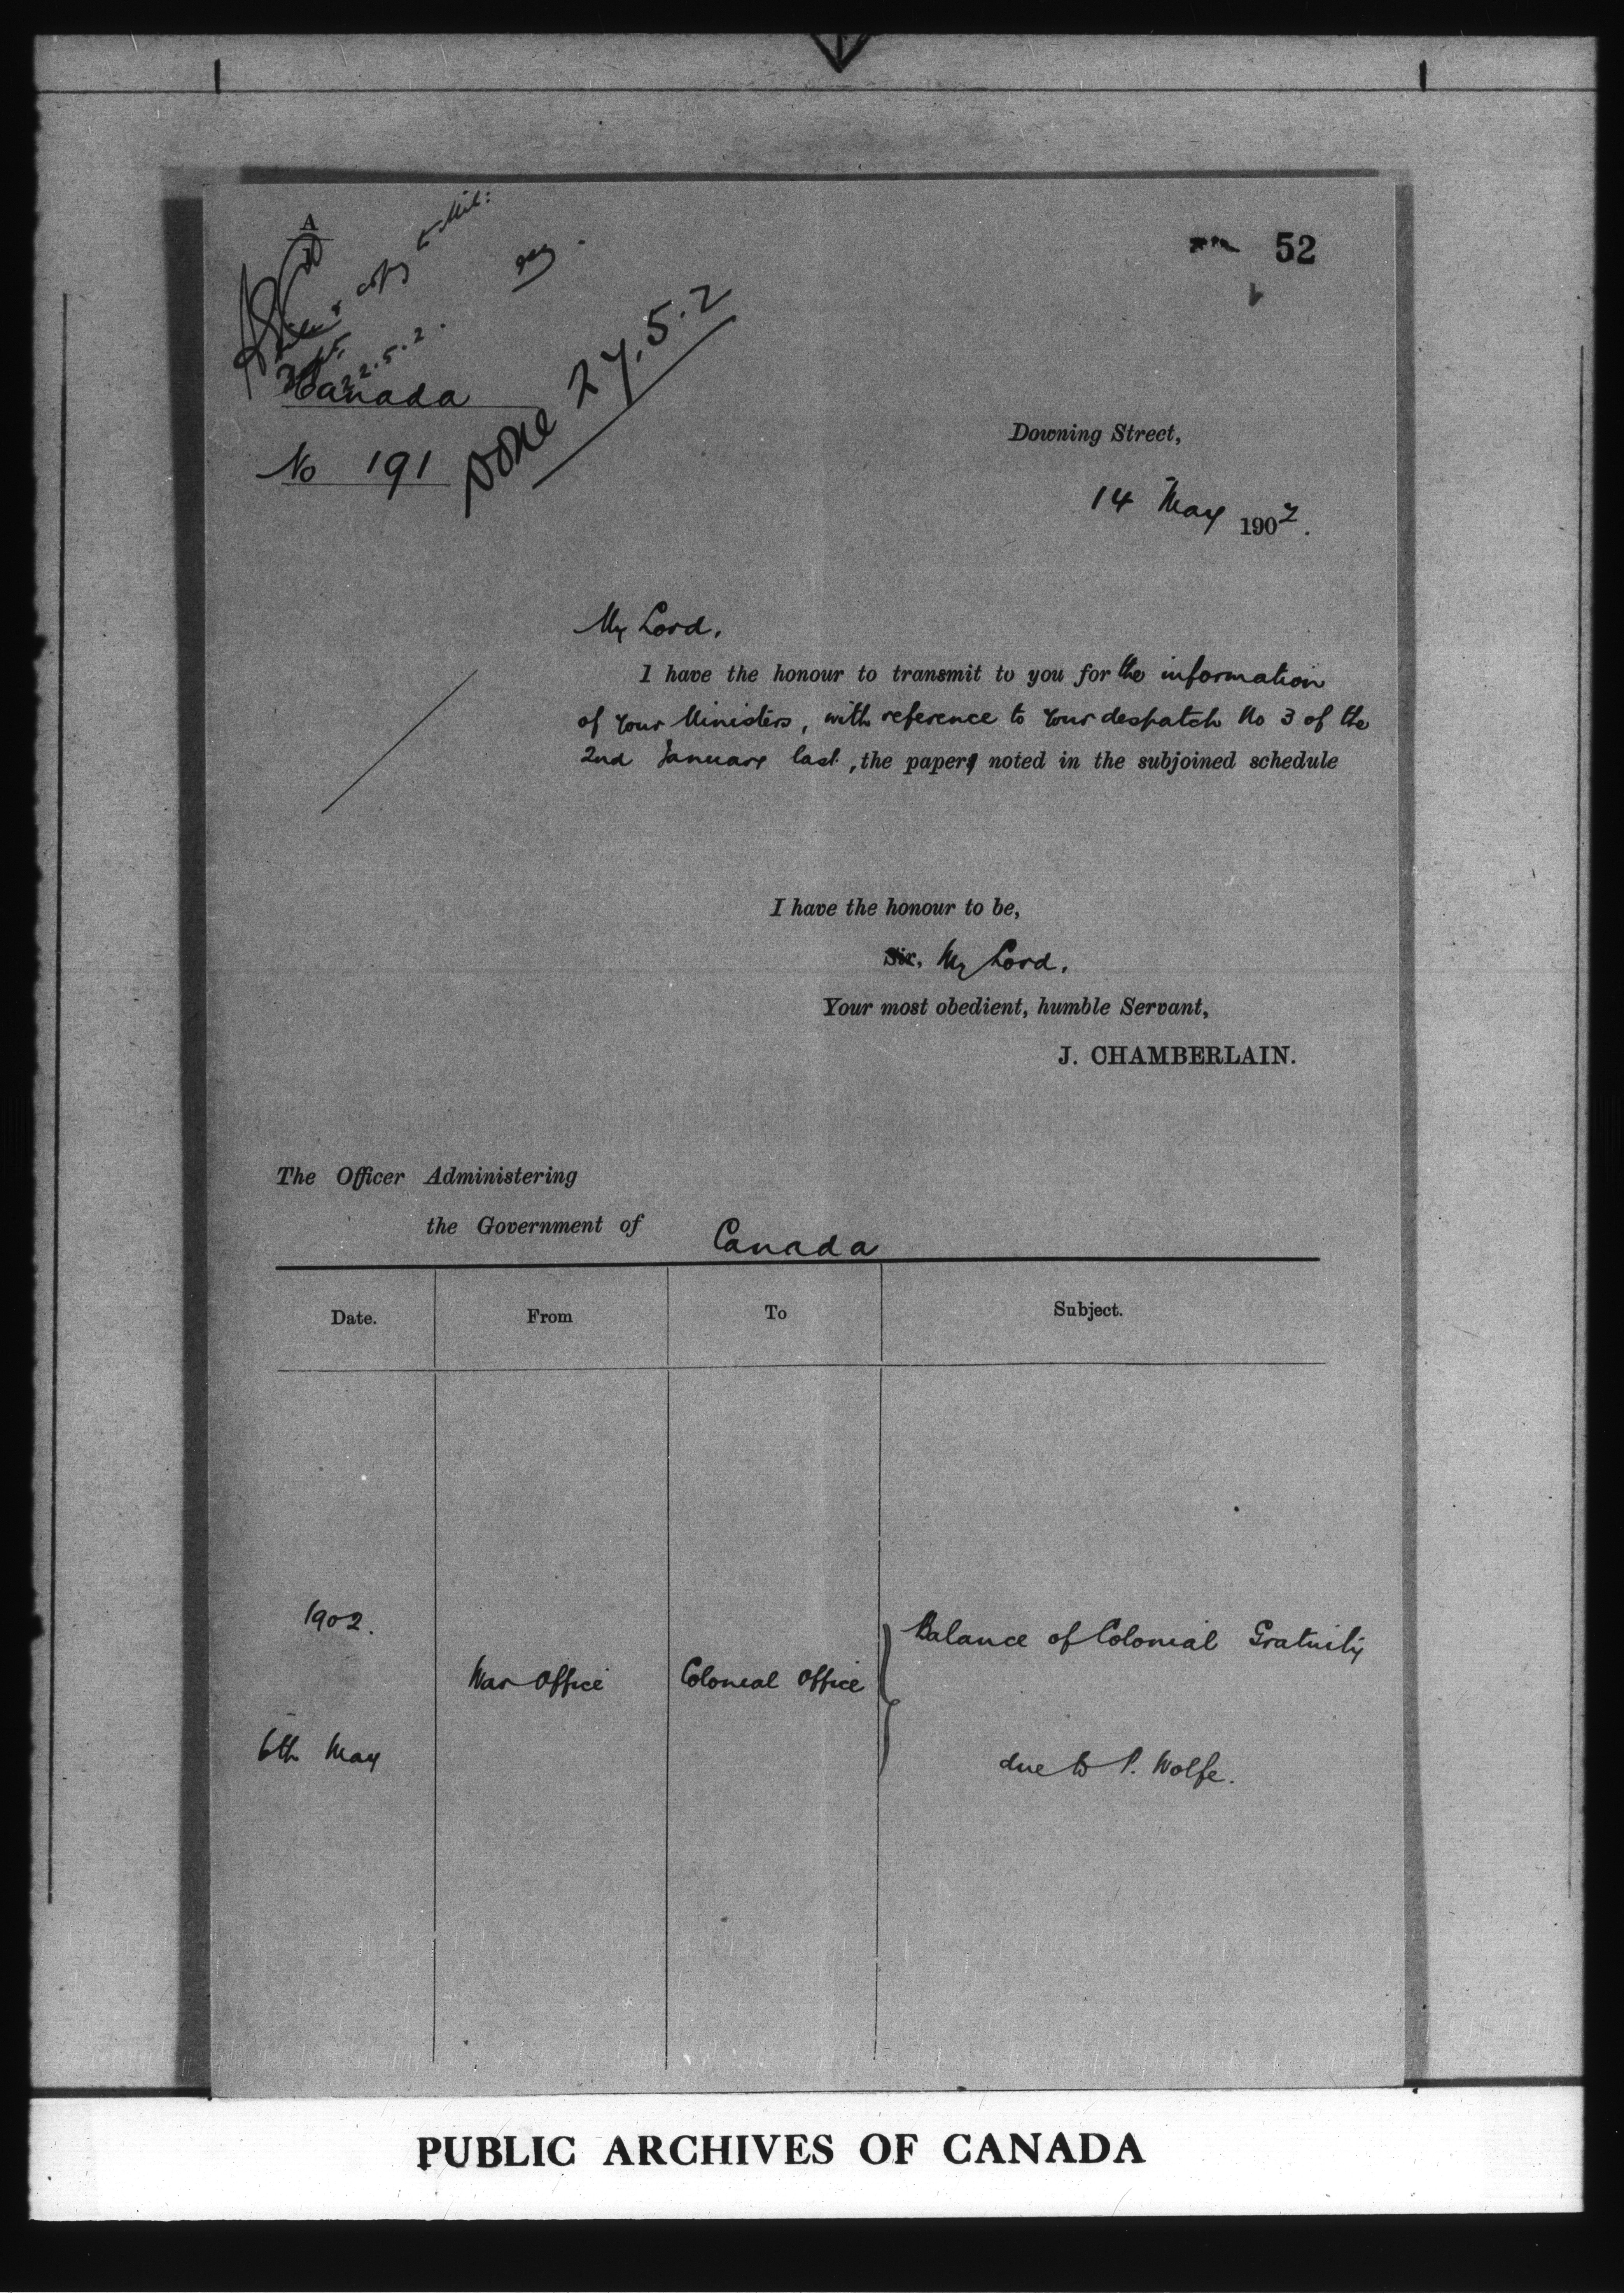 A
copy
52
22.5.2.
Canada
No 191
Done 27.5.2
Downing Street,
14 May 1902.
My Lord,
I have the honour to transmit to you for the information
of Your Ministers, with reference to Your despatch No 3 of the
2nd January last, the paper noted in the subjoined schedule
I have the honour to be,
Sir, My Lord,
Your most obedient, humble Servant,
J. CHAMBERLAIN.
The Officer Administering
the Government of Canada
Date. From To Subject.
1902. Balance of Colonial Gratuity
War Office Colonial Office
6th May due to P. Wolfe.
PUBLIC ARCHIVES OF CANADA